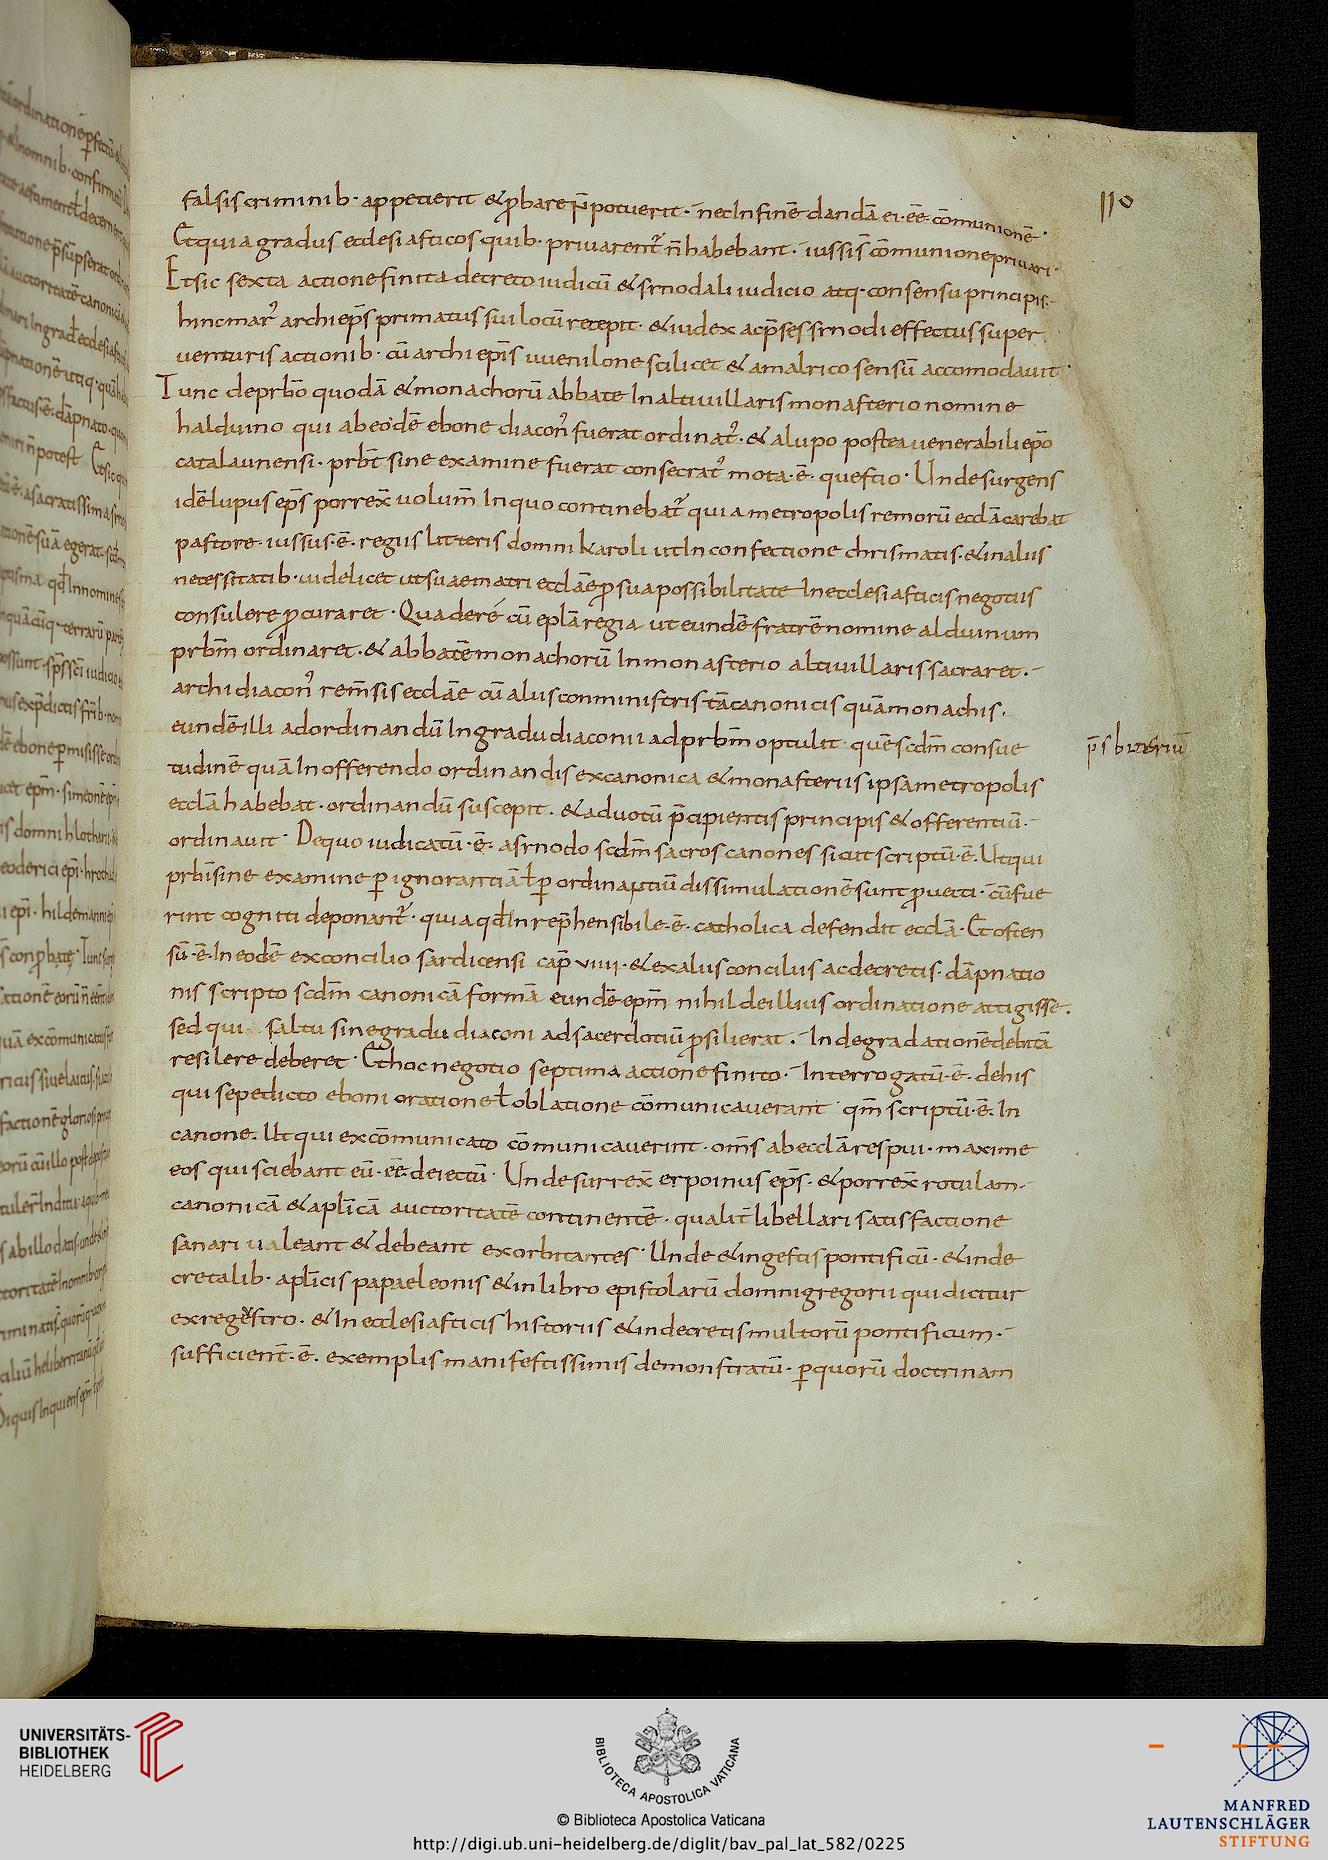 110
falsis criminib· appetierit & ꝓbare ñ potuerit· nec In finē dandā ei·ēē· cōmunionē·
Et quia gradus ecclesiasticos quib· priuarent᷑ ñ habebant· iussis cōmunione priuari·
Et sic sexta actione finita decreto iudicū & sinodali iudicio atq· consensu principis·
hincmar᷒ archiep̄s primatus sui locū recepit· & iudex ac p̄ses sinodi effectus super
uenturis actionib· cū archiep̄is uuenilone scilicet & amalrico sensū accomodauit·
Tunc de prb̄o quodā & monachorū abbate In altiuillaris monasterio nomine
halduino qui ab eodē ebone diacon᷒ fuerat ordinat᷒· & a lupo postea uenerabili ep̄o
catalaunensi· prb̄t sine examine fuerat consecrat᷒ mota·ē· questio· Unde surgens
idē lupus ep̄s porrex̄ uolum̄ In quo continebat᷑ quia metropolis remorū eccl̄a carebat
pastore· iussus·ē· regiis litteris domni karoli ut In confectione chrismatis·& In aliis
necessitatib· uidelicet ut suae matri eccl̄ae ꝓ sua possibilitate In ecclesiasticis negotiis
consulere ꝓcuraret· Qua de ré cū epl̄a regia ut eundē fratrē nomine alduinum
prb̄m ordinaret·& abbatē monachorū In monasterio altiuillaris sacraret·
archidiacon᷒ rem̄sis eccl̄ae cū aliis conministris tā canonicis quā monachis·
eundē illi ad ordinandū In gradu diaconii ad prb̄m optulit· quē scd̄m consue
p̄sbiteriū
tudinē quā In offerendo ordinandis ex canonica & monasteriis ipsa metropolis
eccl̄a habebat· ordinandū suscepit· & ad uotū p̄cipientis principis & offerentiū·
ordinauit· De quo iudicatū·ē· a sinodo scd̄m sacros canones sicut scriptū·ē· Ut qui
prb̄i sine examine ꝑ ignorantiā ł ꝑ ordinantiū dissimulationē sunt ꝓuecti· cū fue
rint cogniti deponant᷑· quia qd̄ Inrep̄hensibile·ē· catholica defendit eccl̄a· Et osten
sū·ē· In eodē ex concilio sardicensi cap̄ viiii· & ex aliis conciliis ac decretis· dāpnatio
nis scripto scd̄m canonicā formā eundē ep̄m nihil de illius ordinatione attigisse·
sed qui saltu sine gradu diaconi ad sacerdotiū ꝓsilierat· In degradationē debitā
resilere deberet· Et hoc negotio septima actione finito· Interrogatū·ē· de his
qui sepedicto eboni oratione ł oblatione cōmunicauerant· qm̄ scriptū·ē· In
canone· Ut qui excōmunicato cōmunicauerint· om̄s ab eccl̄a respui· maxime
eos qui sciebant eū·ēē· deiectū· Unde surrex̄ erpoinus ep̄s· & porrex̄ rotulam·
canonicā & apl̄icā auctoritatē continentē· qualit̄ libellari satisfactione
sanari ualeant & debeant exorbitantes· Unde & in gestis pontificū· & in de
cretalib· apl̄icis papae leonis & in libro epistolarū domni gregorii qui dicitur
ex regestro· & In ecclesiasticis historiis & in decretis multorū pontificum·
sufficient̄·ē· exemplis manifestissimis demonstratū· ꝑ quorū doctrinam
UNIVERSITÄTS-
BIBLIOTHEK
HEIDELBERG
BIBLIOTECA APOSTOLICA VATICANA
© Biblioteca Apostolica Vaticana
http://digi.ub.uni-heidelberg.de/diglit/bav_pal_lat_582/0225
MANFRED
LAUTENSCHLÄGER
STIFTUNG